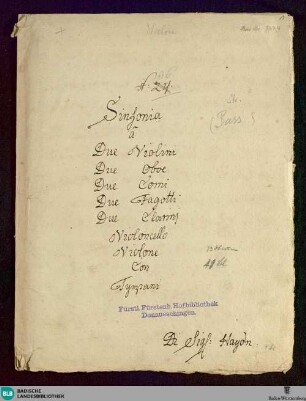 Sinfonia
â
Due Violini
Due Oboe
Due Corni
Due Fagotti
Due Clarinj
Violoncello
Violone
Con
Tÿmpani
Fürstl. Fürstenb. Hofbibliothek
Donaueschingen.
Del Sigl: Haydn.
BLB BADISCHE
LANDESBIBLIOTHEK
Baden-Württemberg